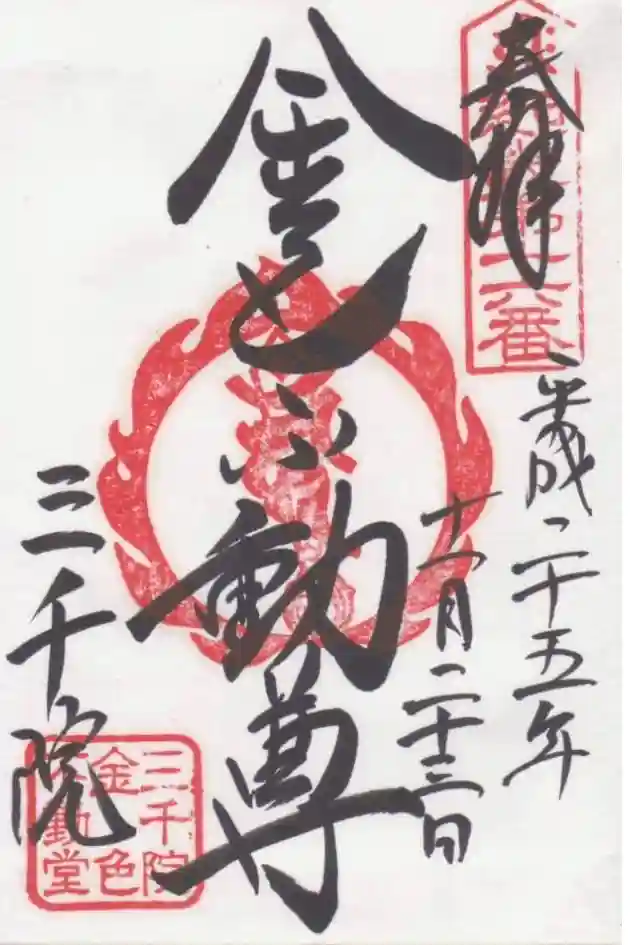 奉拝
十六番
平成二十五年
十一月二十三日
金色不動尊
三千院
三千院
金色
不動堂